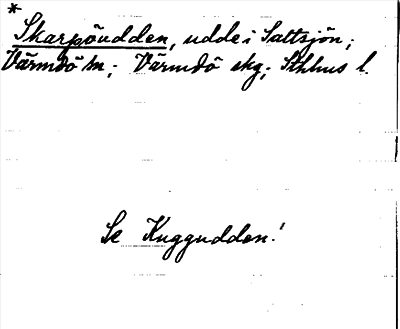 *
Skarpöudden, udde i Saltsjön;
Värmdö sn; Värmdö skg; Sthlms l.
Se Kuggudden!